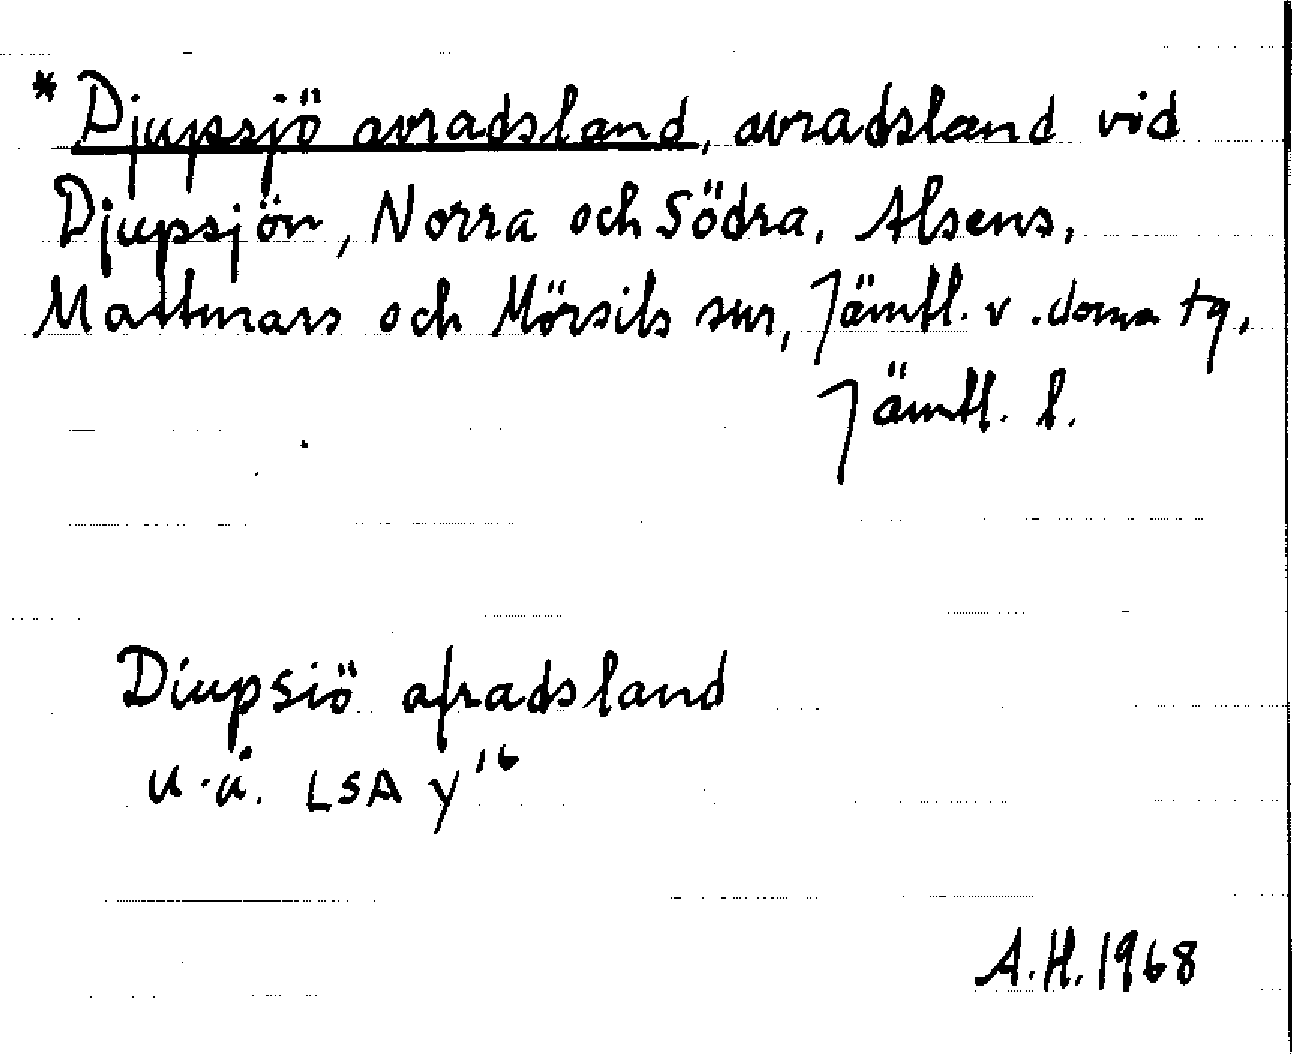 * Djupsjö avradsland, avradsland vid
Djupsjön, Norra och Södra, Alsens,
Mattmars och Mörsils snr, Jämtl. v. doms tg,
Jämtl. l.
Diupsiö afradsland
u.å. LSA y16
A.H. 1968